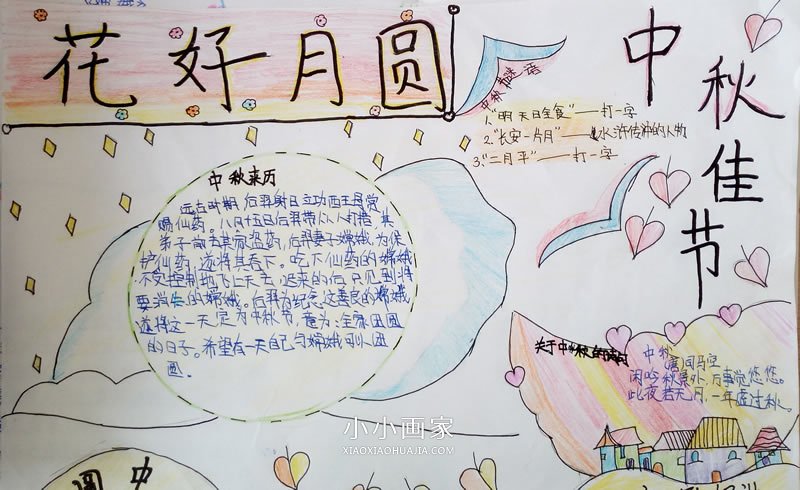 花好月圆
中秋佳节
中秋谜语
1."明天日全食"——打一字
2."长安一片月"——水浒传中的人物
3."二月平"——打一字
中秋来历
远古时期后羿射日立功西王母赏
赐仙药。八月十五日后羿带众人打猎,其
弟子前去其家盗药,后羿妻子嫦娥为保
护仙药,遂将其吞下。吃下仙药的嫦娥
不受控制地飞上天去,迟来的后只见到将
要消失的嫦娥。后羿为纪念这善良的嫦娥
遂将这一天定为中秋节,意为:全家团圆
的日子。希望有一天自己与嫦娥可以团
圆.
关于中秋的诗句
中秋
司马空
闲吟秋景外,万事觉悠悠。
此夜若无月,一年虚过秋。
小小画家
XIAOXIAOHUAJIA.COM
圆 中